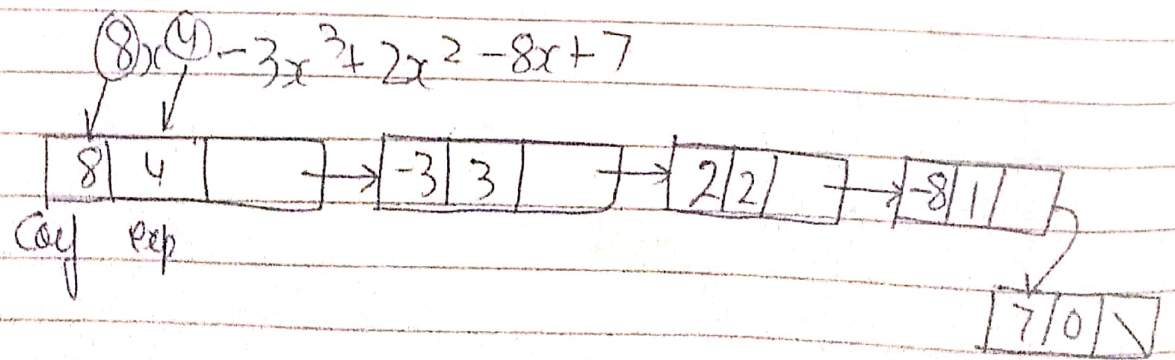 8x⁴ - 3x³ + 2x² - 8x + 7
8 4 -3 3 2 2 -8 1
Coef exp
7 0